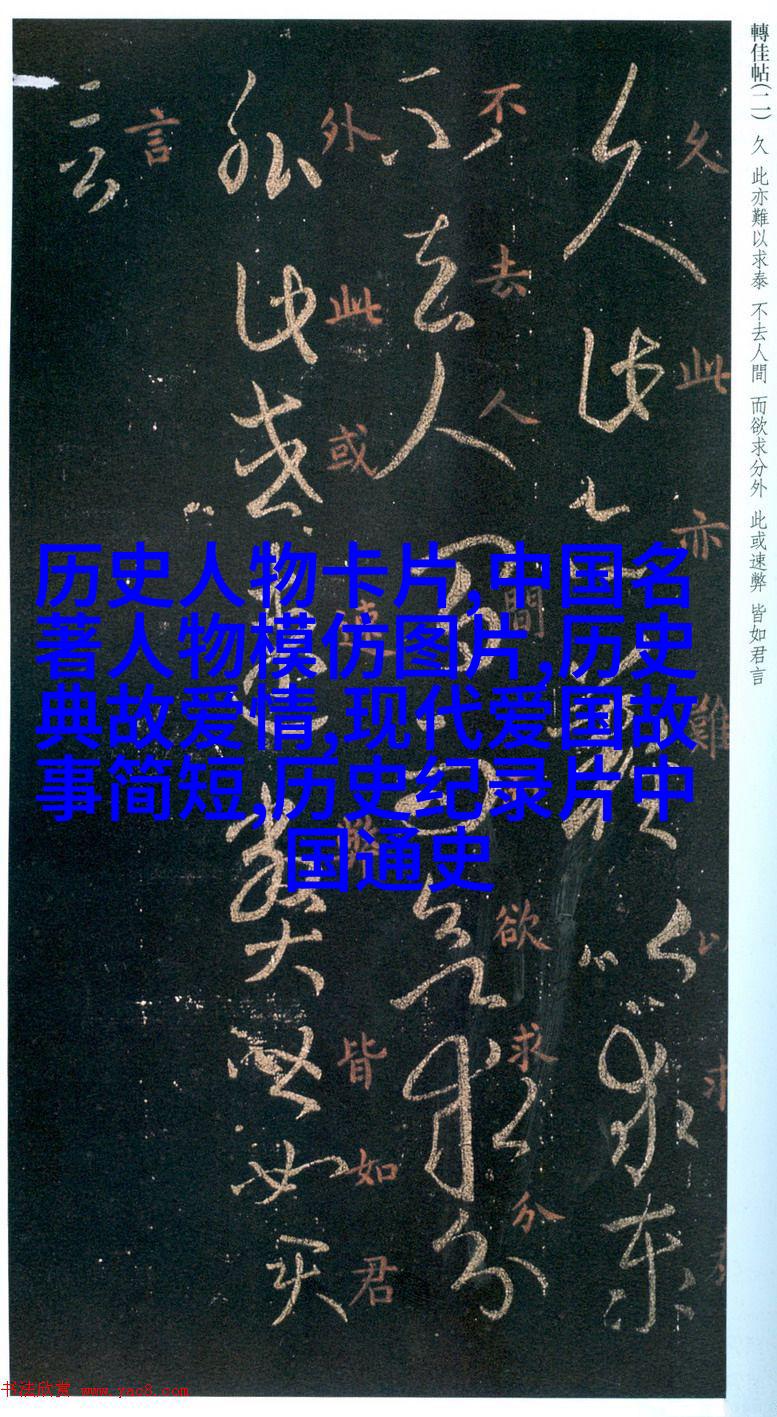 轉佳帖(二) 久 此亦難以求泰 不去人間 而欲求分外 此或速弊 皆如君言
久此亦難以求泰
不去人間而欲求分
外此或速弊皆如君
言
历史人物卡片,中国名
著人物模仿图片,历史
典故爱情,现代爱国故
事简短,历史纪录片中
国通史
书法欣赏 www.yac8.com